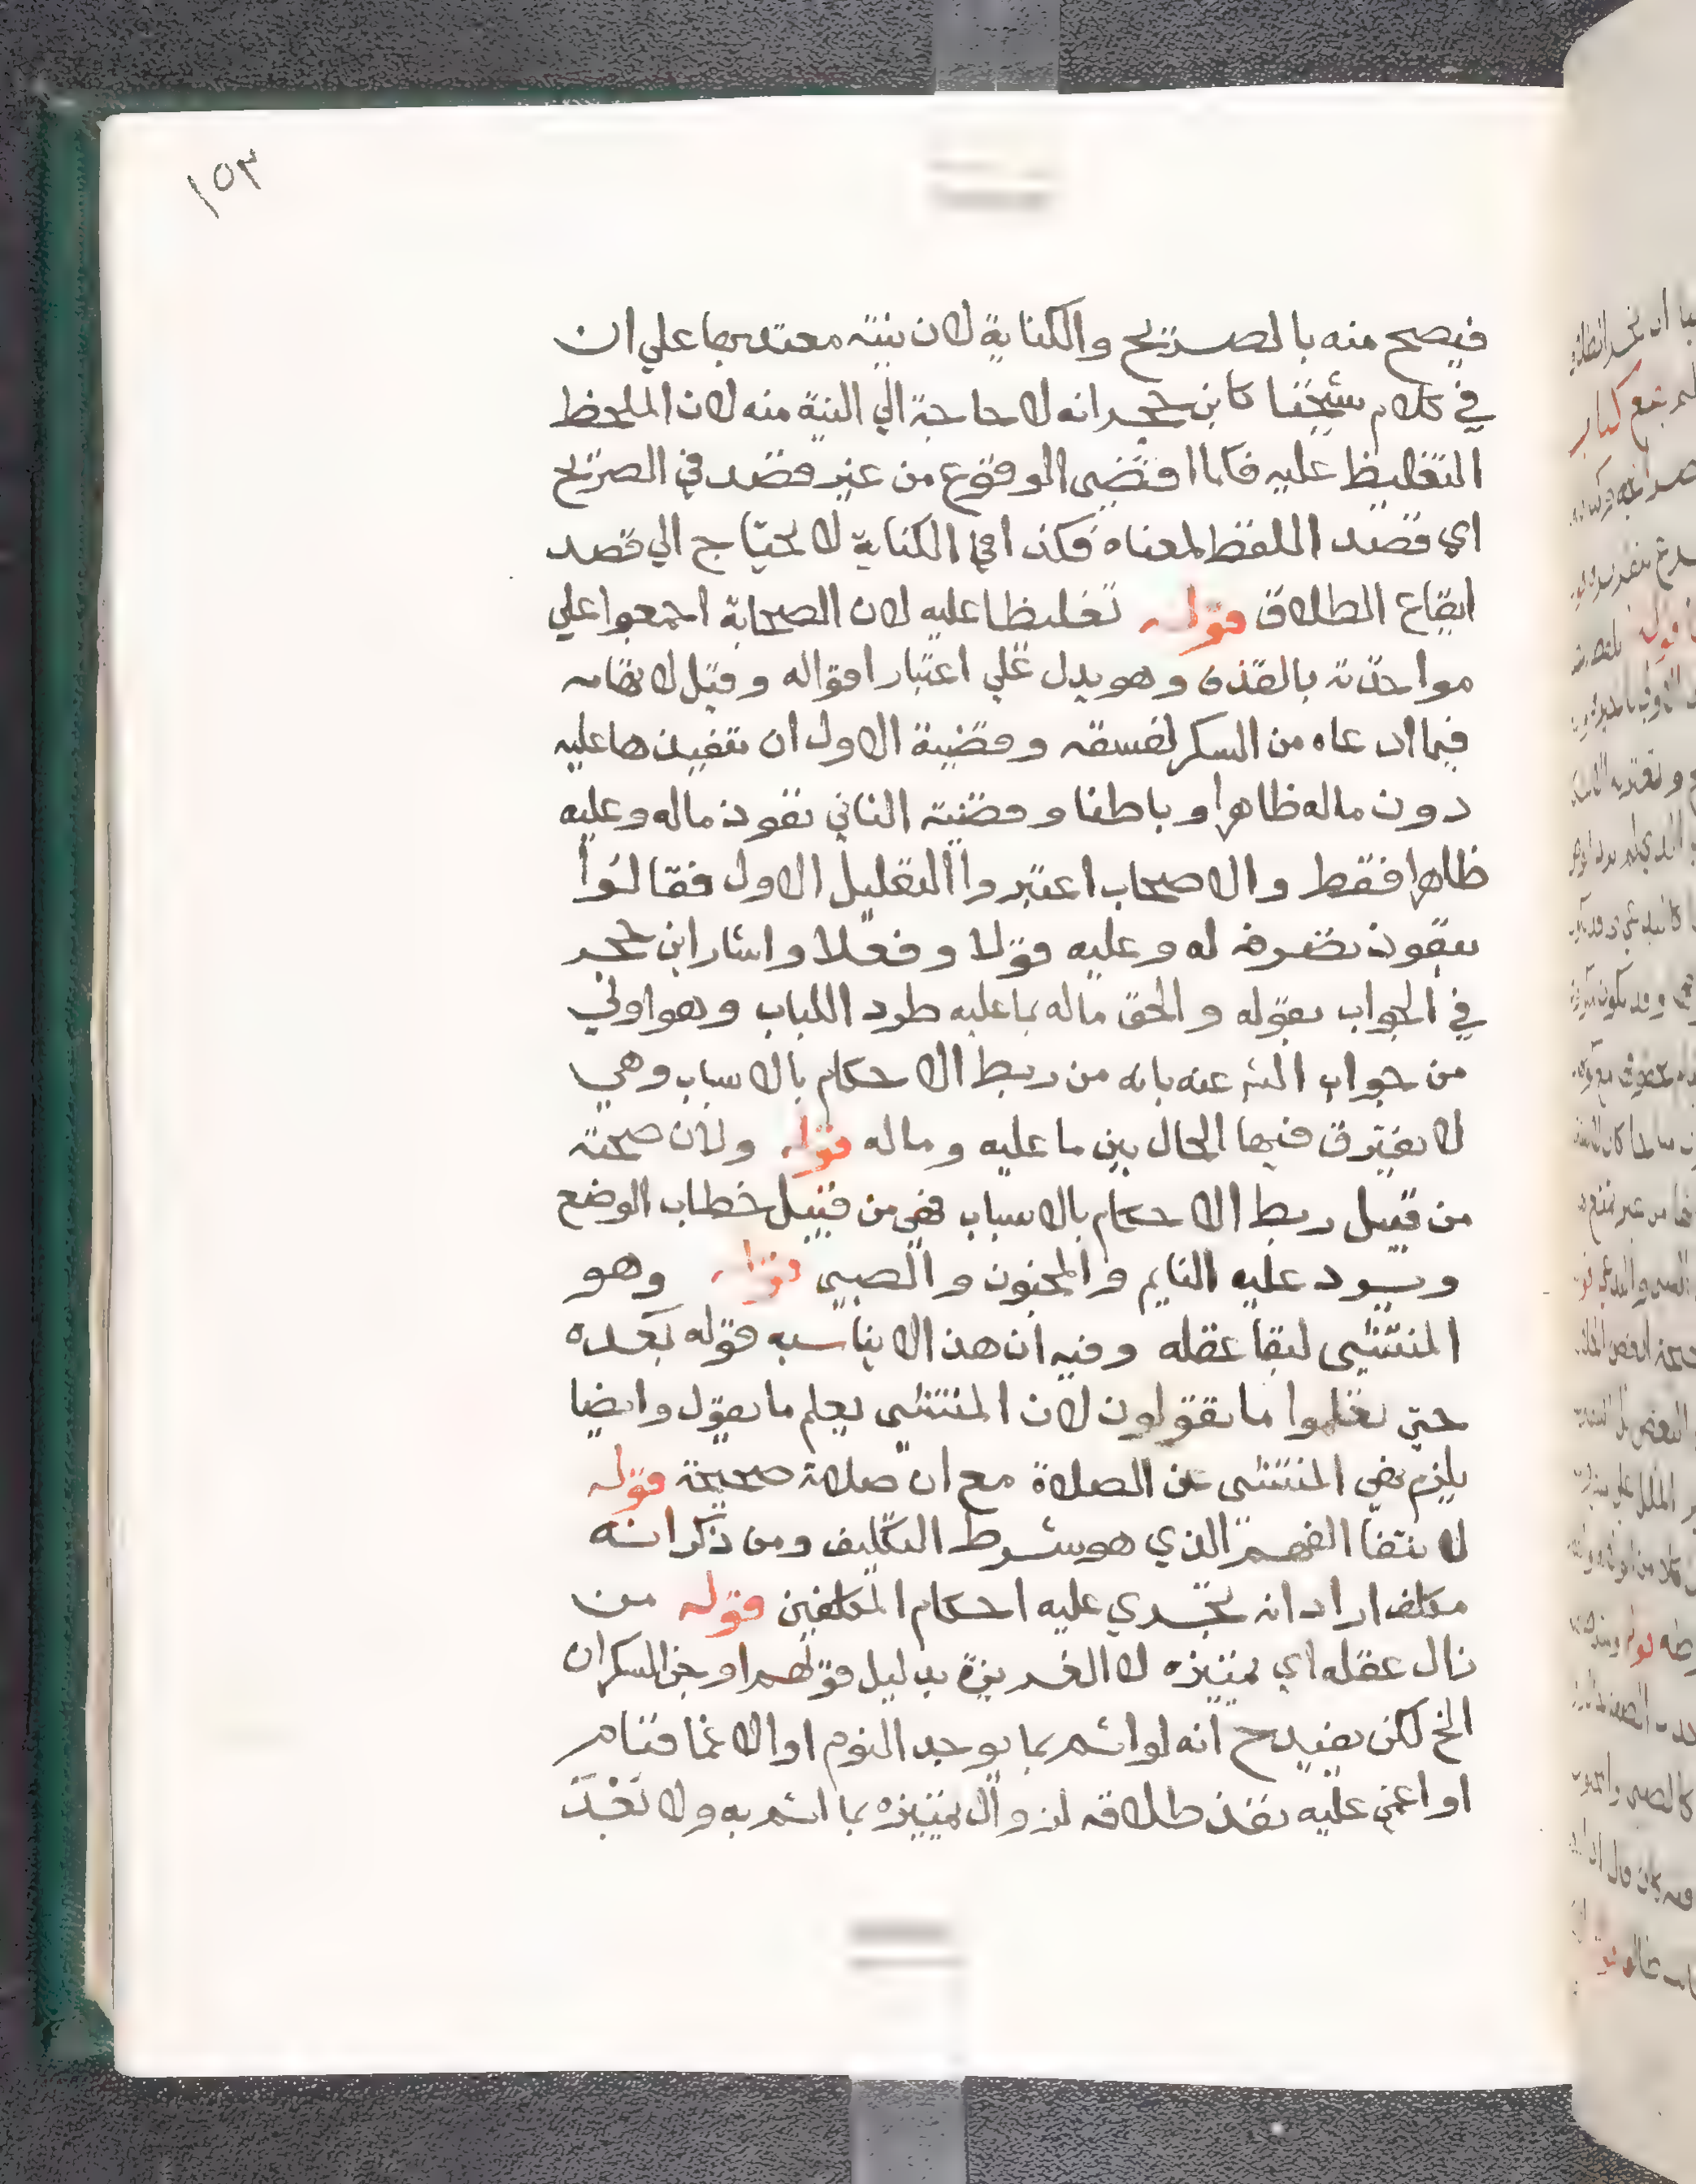 ١٥٣
فيصح منه بالصريح والكناية لان نيته معتد بها علي ان
في كلام شيخنا كابن حجر انه لا حاجة الي النية منه لان الملحظ
التغليظ عليه فكما اقتضي الوقوع من غير قصد في الصريح
اي قصد اللفظ لمعناه فكذا في الكناية لا يحتاج الي قصد
ايقاع الطلاق قوله تغليظا عليه لان الصحابة اجمعوا علي
مواخذته بالقذف وهو يدل علي اعتبار اقواله وقيل لاتهامه
فيما ادعاه من السكر لفسقه وقضية الاول ان تنفيذها عليه
دون ماله ظاهرا وباطنا وقضية الثاني نفوذ ماله وعليه
ظاهرا فقط والاصحاب اعتبروا التعليل الاول فقالوا
بنفوذ تصرفه له وعليه قولا وفعلا واشار ابن حجر
في الجواب بقوله والحق ماله بما عليه طرد اللباب وهو اولي
من جواب الش عنه بانه من ربط الاحكام بالاسباب وهي
لا يفترق فيها الحال بين ما عليه وماله قوله ولان صحته
من قبيل ربط الاحكام بالاسباب فهي من قبيل خطاب الوضع
ويرد عليه النايم والمجنون والصبي قوله وهو
المنتشي لبقا عقله وفيه ان هذا لا يناسبه قوله بعده
حتي تعلموا ما تقولون لان المنتشي يعلم ما يقول وايضا
يلزم نهي المنتشي عن الصلاة مع ان صلاته صحيحة قوله
لانتفا الفهم الذي هو شرط التكليف ومن ذكر انه
مكلف اراد انه تجري عليه احكام المكلفين قوله من
زال عقله اي تمييزه لا الغريزة بدليل قولهم او جن السكران
الخ لكن يفيد ح انه لو اثم بما يوجد النوم او الاغما فنام
او اغمي عليه نفذ طلاقه لزوال تمييزه بما اثم به ولا بعد